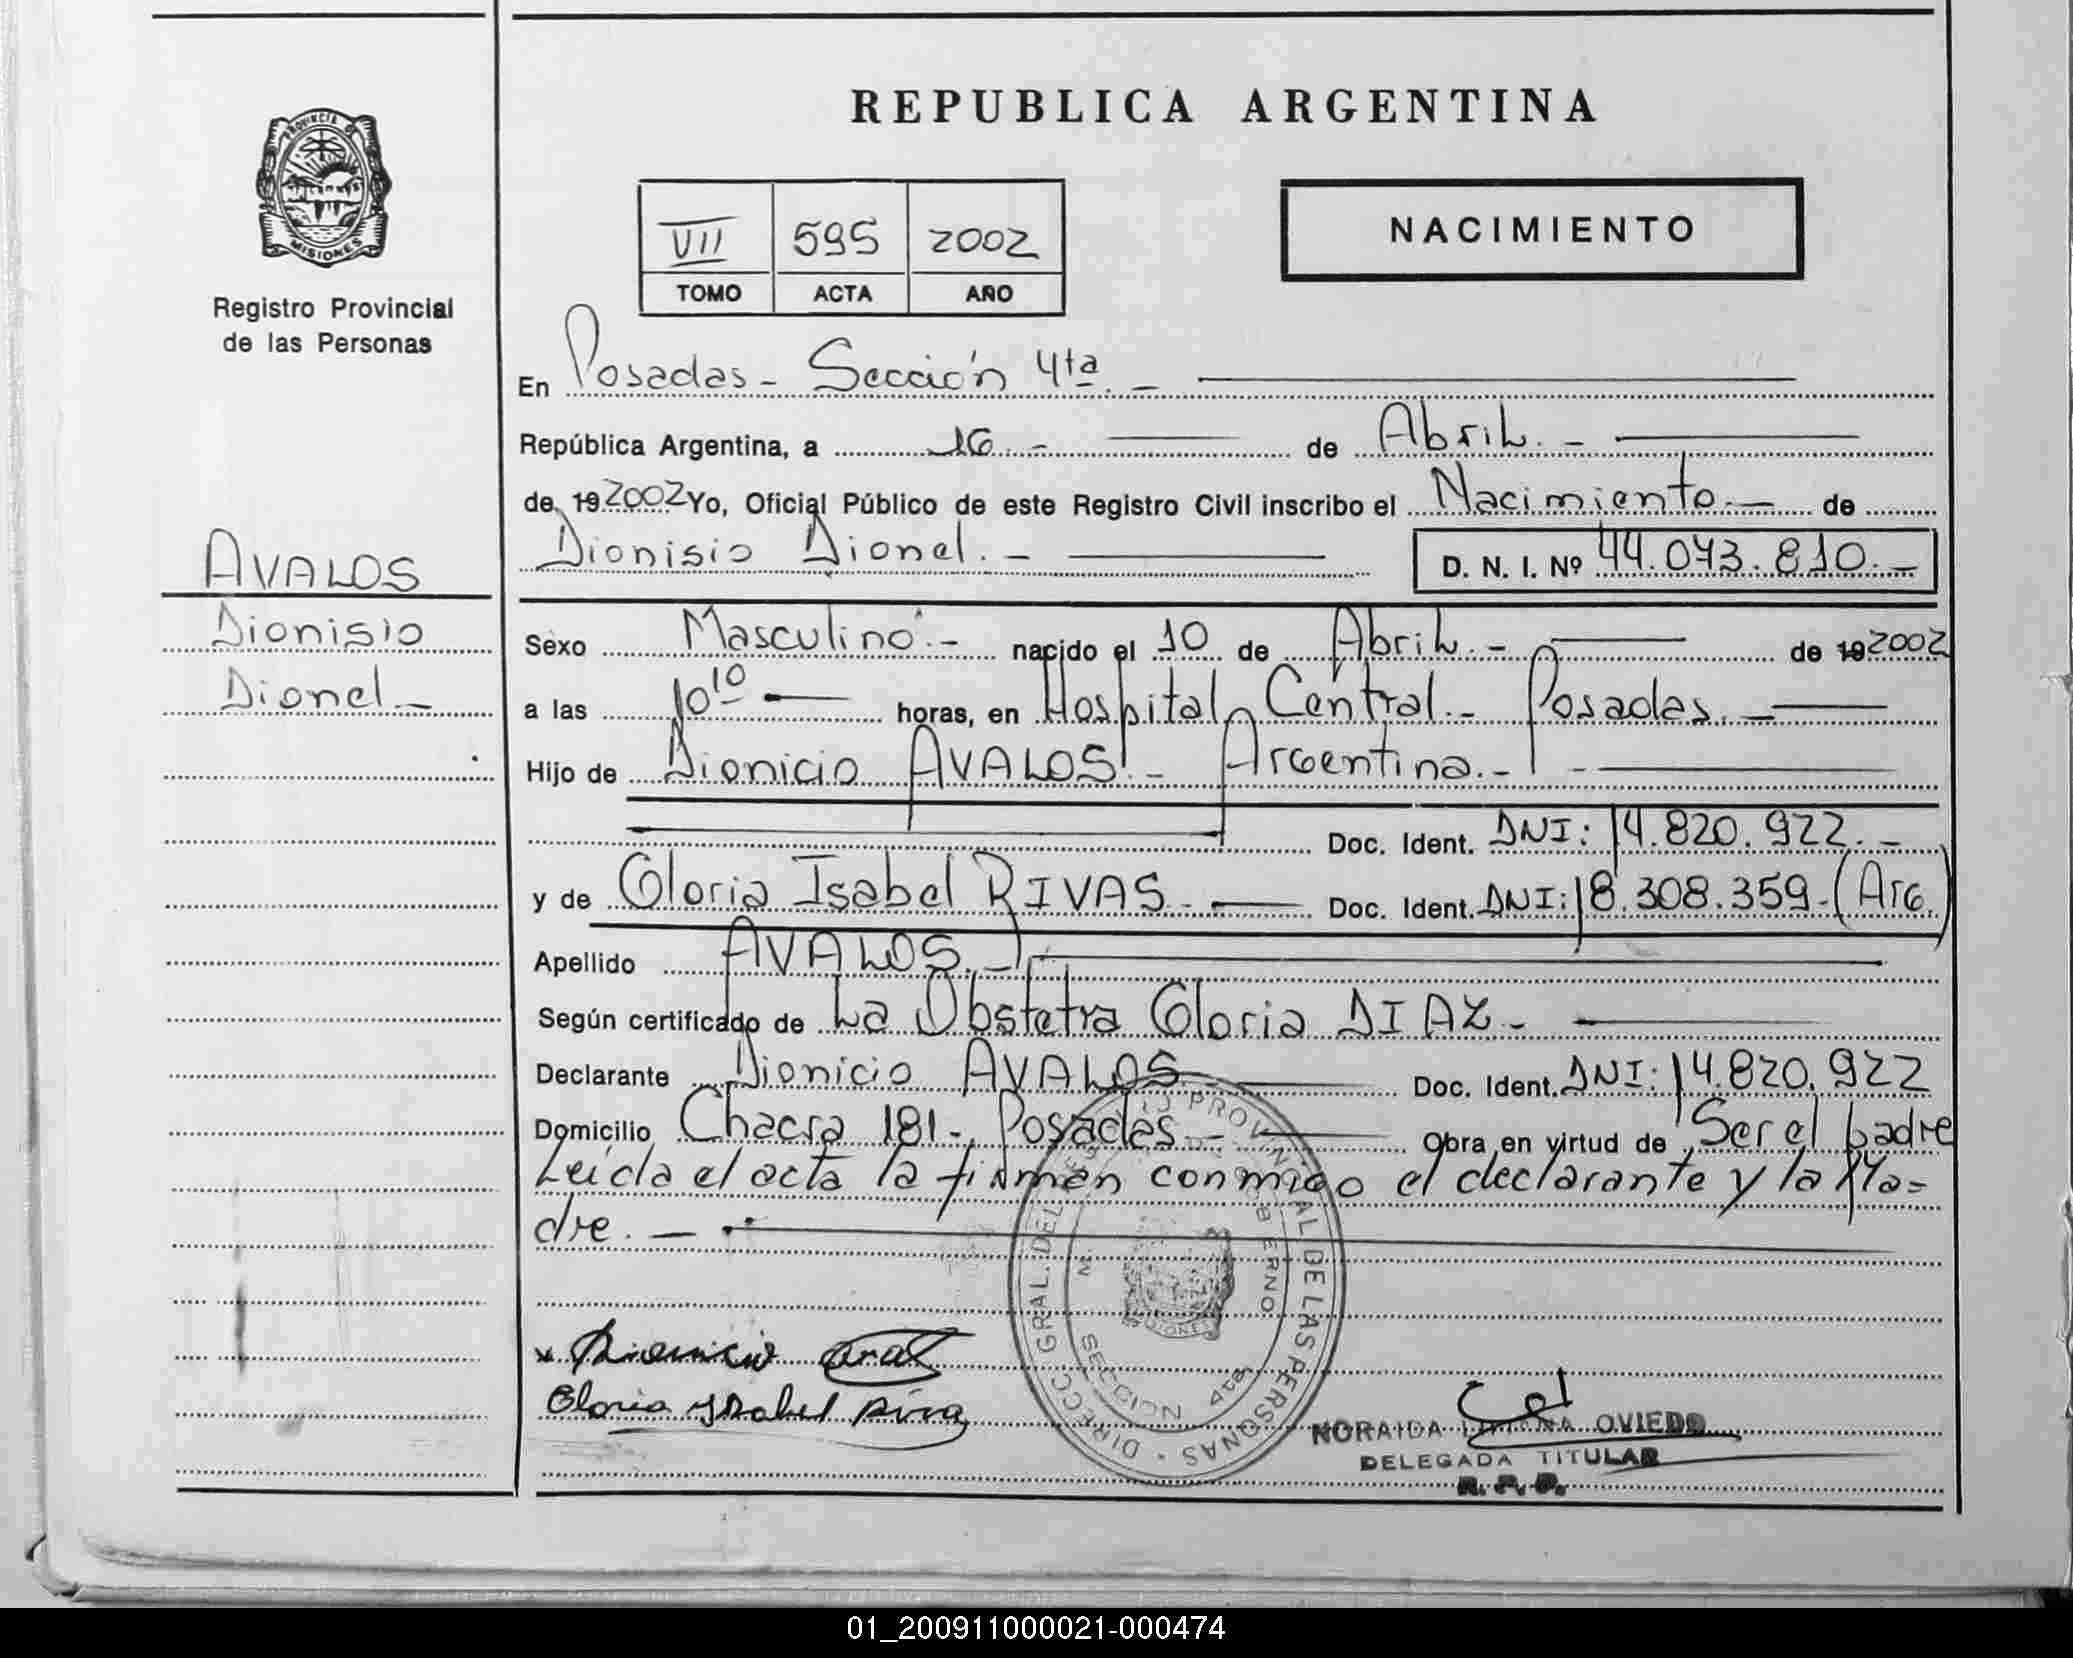 REPUBLICA ARGENTINA
PROVINCIA DE
MISIONES
Registro Provincial
de las Personas
VII 595 2002
TOMO ACTA AÑO
NACIMIENTO
En Posadas - Sección 4ta. -
República Argentina, a 16. - de Abril. -
de 19 2002 Yo, Oficial Público de este Registro Civil inscribo el Nacimiento. - de
Dionisio Dionel. - D. N. I. Nº 44.073.810. -
AVALOS
Dionisio
Dionel -
Sexo Masculino. - nacido el 10 de Abril. - de 19 2002
a las 10 10 horas, en Hospital Central. - Posadas. -
Hijo de Dionicio AVALOS. - Argentina. -
Doc. Ident. DNI: 14.820.922. -
y de Gloria Isabel RIVAS - Doc. Ident. DNI: 18.308.359 - (Arg.)
Apellido AVALOS. -
Según certificado de La Obstetra Gloria DIAZ -
Declarante Dionicio AVALOS - Doc. Ident. DNI: 14.820.922
Domicilio Chacra 181 -, Posadas - Obra en virtud de Ser el padre
Leída el acta la firman conmigo el declarante y la Ma=
dre. -
DIRECC. GRAL. DEL REGISTRO PROVINCIAL DE LAS PERSONAS
GOBIERNO
MISIONES
SECCION 4ta
Dionicio
Gloria Ysabel Riva
NORAIDA OVIEDO
DELEGADA TITULAR
R. P. P.
01_200911000021-000474